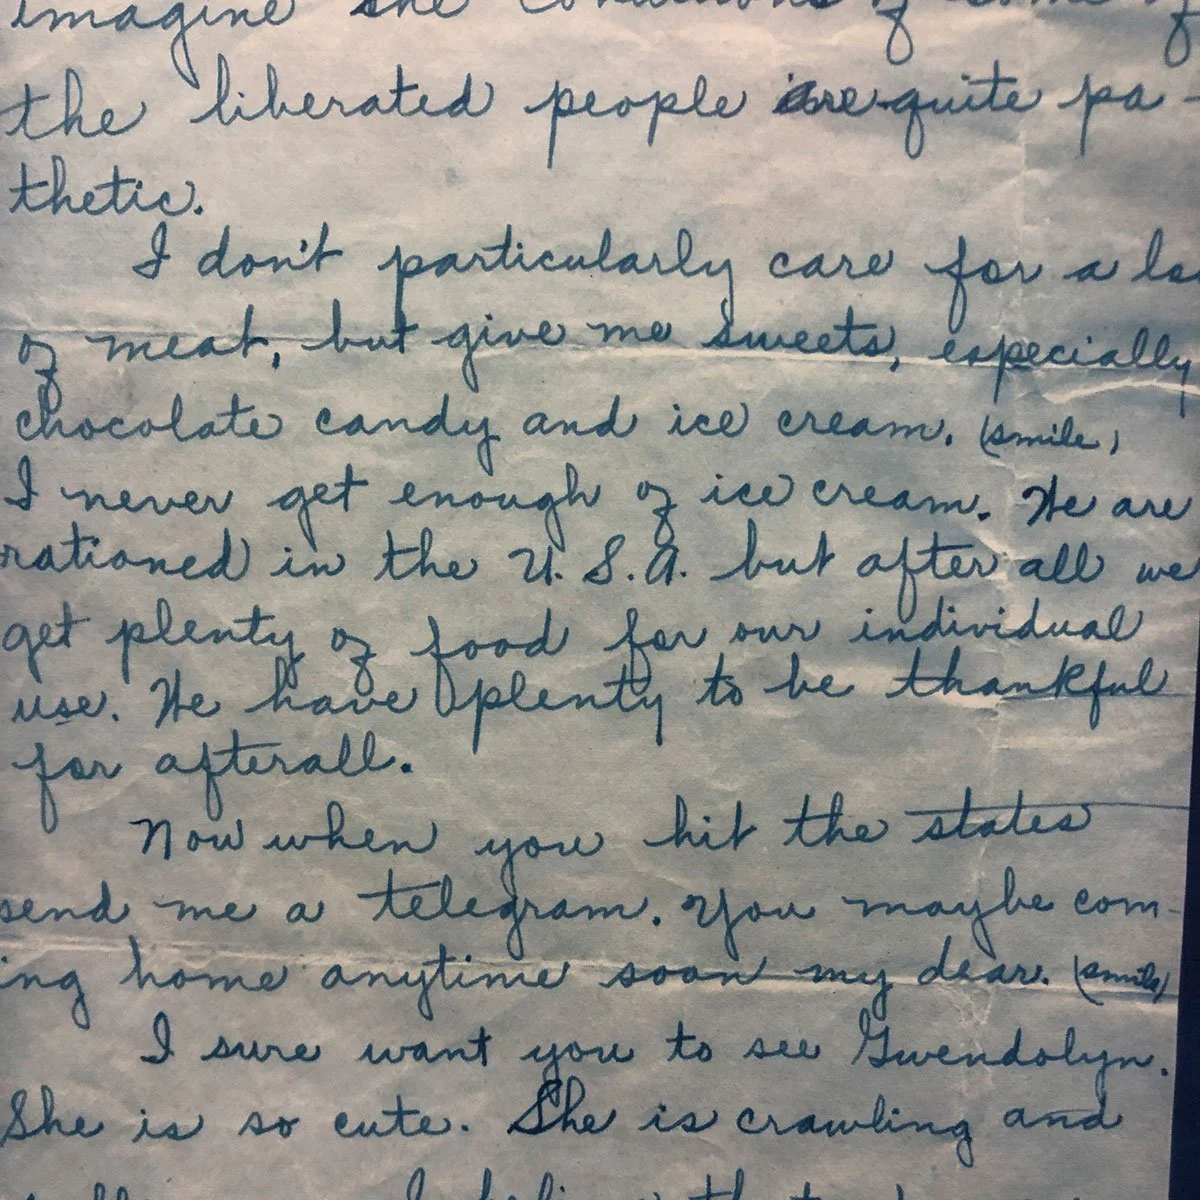 imagine the conditions of some of
the liberated people are quite pa-
thetic.
I don't particularly care for a lo
of meat, but give me sweets, especially
chocolate candy and ice cream. (smile)
I never get enough of ice cream. We are
rationed in the U.S.A. but after all we
get plenty of food for our individual
use. We have plenty to be thankful
for afterall.
Now when you hit the states
send me a telegram. You maybe com-
ing home anytime soon my dear. (smile)
I sure want you to see Gwendolyn.
She is so cute. She is crawling and
I believe that